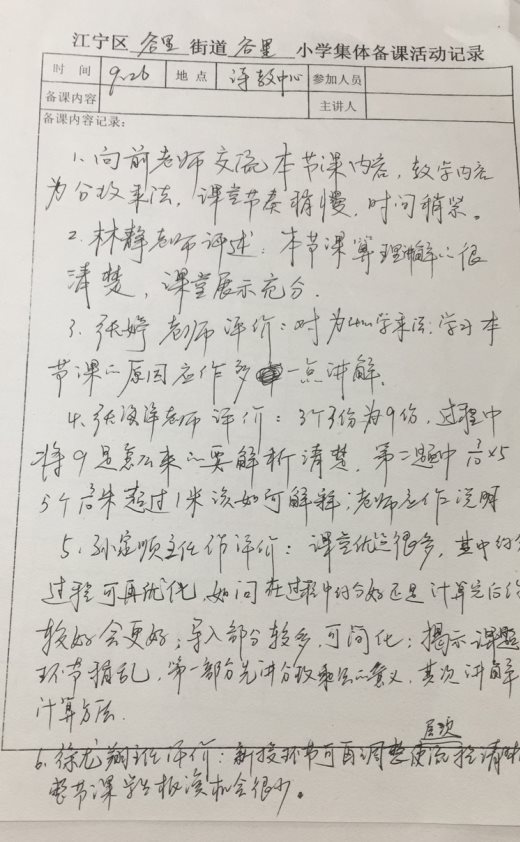 江宁区 谷里 街道 谷里 小学集体备课活动记录
时 间 9.26 地 点 诗教中心 参加人员
备课内容 主讲人
备课内容记录：
1. 向前老师交流本节课内容，教学内容
为分数乘法，课堂节奏稍慢，时间稍紧。
2. 林静老师评述：本节课算理讲解的很
清楚，课堂展示充分．
3. 张婷老师评价：对为什么学乘法，学习本
节课的原因应作多一点讲解．
4. 张海洋老师评价：3个3份为9份，过程中
将9是怎么来的要解析清楚，第二题中 3/10×5
5个3/10米超过1米该如何解释，老师应作说明
5. 孙定顺主任作评价：课堂优点很多，其中约分
过程可再优化，如问在过程中约分好还是计算完后约
较好会更好；导入部分较多，可简化；揭示课题
环节稍乱，第一部分先讲分数乘法的意义，其次讲解
计算方法．
层次
6. 徐龙翔主任评价：新授环节可再调整使流程清晰
整节课学生板演机会很少。